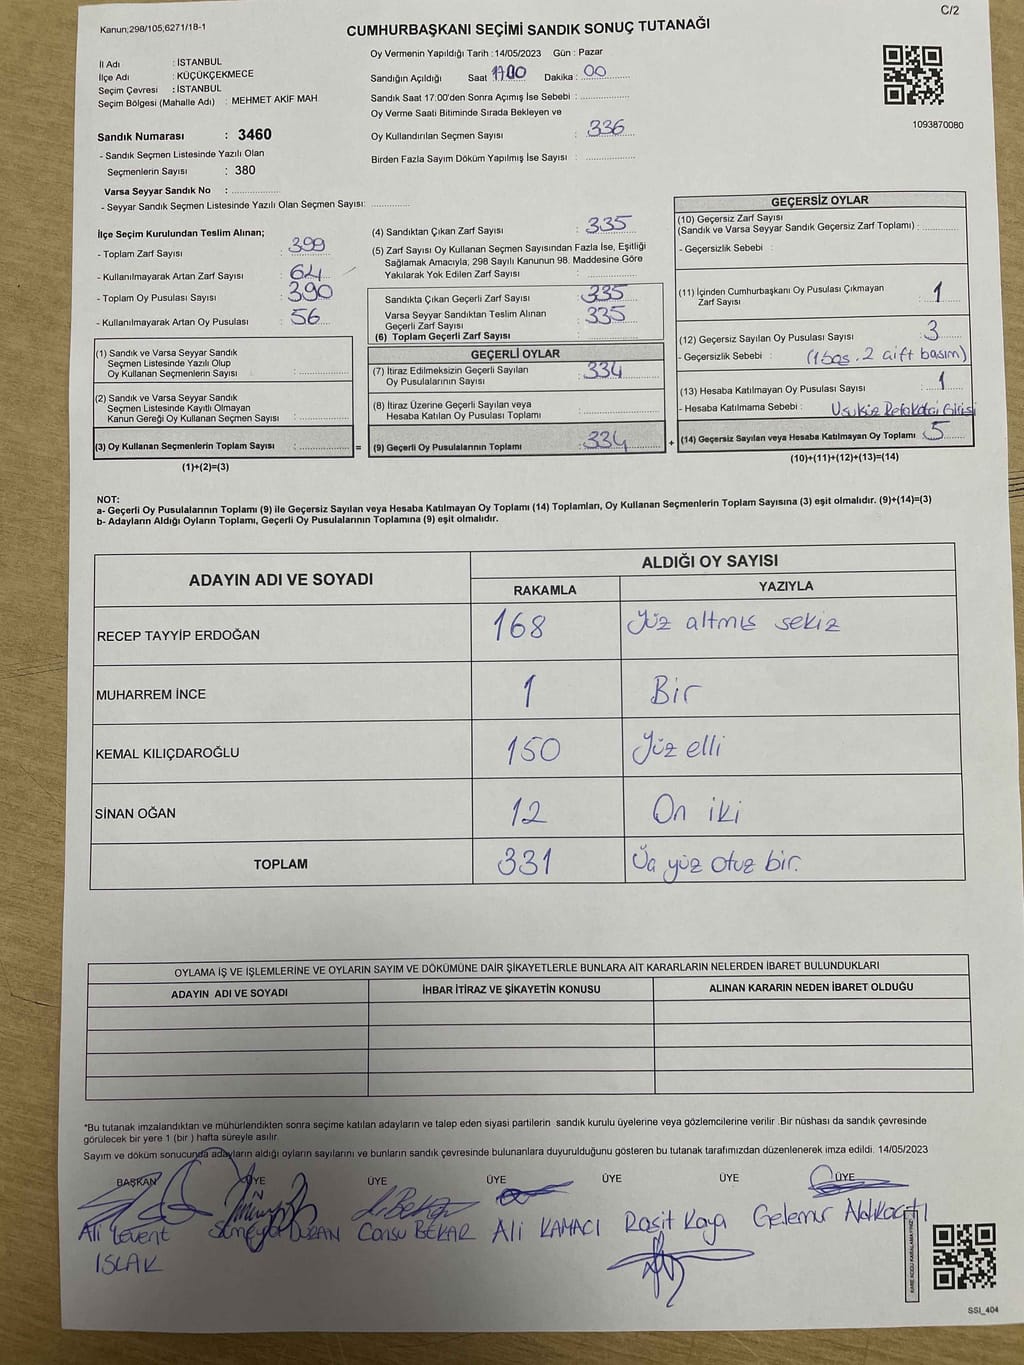 Kanun;298/105,6271/18-1
C/2
CUMHURBAŞKANI SEÇİMİ SANDIK SONUÇ TUTANAĞI
İl Adı : İSTANBUL
İlçe Adı : KÜÇÜKÇEKMECE
Seçim Çevresi : İSTANBUL
Seçim Bölgesi (Mahalle Adı) : MEHMET AKİF MAH
Sandık Numarası : 3460
- Sandık Seçmen Listesinde Yazılı Olan
Seçmenlerin Sayısı : 380
Varsa Seyyar Sandık No : ................
- Seyyar Sandık Seçmen Listesinde Yazılı Olan Seçmen Sayısı: ............
Oy Vermenin Yapıldığı Tarih : 14/05/2023 Gün : Pazar
Sandığın Açıldığı Saat 17.00 Dakika : 00
Sandık Saat 17:00'den Sonra Açımış İse Sebebi : ................
Oy Verme Saati Bitiminde Sırada Bekleyen ve
Oy Kullandırılan Seçmen Sayısı : 336
Birden Fazla Sayım Döküm Yapılmış İse Sayısı : ................
1093870080
İlçe Seçim Kurulundan Teslim Alınan;
- Toplam Zarf Sayısı : 399
- Kullanılmayarak Artan Zarf Sayısı : 64
- Toplam Oy Pusulası Sayısı : 390
- Kullanılmayarak Artan Oy Pusulası : 56
(1) Sandık ve Varsa Seyyar Sandık
Seçmen Listesinde Yazılı Olup
Oy Kullanan Seçmenlerin Sayısı : ................
(2) Sandık ve Varsa Seyyar Sandık
Seçmen Listesinde Kayıtlı Olmayan
Kanun Gereği Oy Kullanan Seçmen Sayısı : ................
(3) Oy Kullanan Seçmenlerin Toplam Sayısı : ................ =
(1)+(2)=(3)
(4) Sandıktan Çıkan Zarf Sayısı : 335
(5) Zarf Sayısı Oy Kullanan Seçmen Sayısından Fazla İse, Eşitliği
Sağlamak Amacıyla; 298 Sayılı Kanunun 98. Maddesine Göre
Yakılarak Yok Edilen Zarf Sayısı : ................
Sandıkta Çıkan Geçerli Zarf Sayısı : 335
Varsa Seyyar Sandıktan Teslim Alınan
Geçerli Zarf Sayısı : 335
(6) Toplam Geçerli Zarf Sayısı :
GEÇERLİ OYLAR
(7) İtiraz Edilmeksizin Geçerli Sayılan
Oy Pusulalarının Sayısı : 334
(8) İtiraz Üzerine Geçerli Sayılan veya
Hesaba Katılan Oy Pusulası Toplamı : ................
(9) Geçerli Oy Pusulalarının Toplamı : 334 +
GEÇERSİZ OYLAR
(10) Geçersiz Zarf Sayısı
(Sandık ve Varsa Seyyar Sandık Geçersiz Zarf Toplamı) : ............
- Geçersizlik Sebebi :
(11) İçinden Cumhurbaşkanı Oy Pusulası Çıkmayan
Zarf Sayısı : 1
(12) Geçersiz Sayılan Oy Pusulası Sayısı : 3
- Geçersizlik Sebebi : (1 boş. 2 çift basım)
(13) Hesaba Katılmayan Oy Pusulası Sayısı : 1
- Hesaba Katılmama Sebebi :
(14) Geçersiz Sayılan veya Hesaba Katılmayan Oy Toplamı : 5
(10)+(11)+(12)+(13)=(14)
NOT:
a- Geçerli Oy Pusulalarının Toplamı (9) ile Geçersiz Sayılan veya Hesaba Katılmayan Oy Toplamı (14) Toplamları, Oy Kullanan Seçmenlerin Toplam Sayısına (3) eşit olmalıdır. (9)+(14)=(3)
b- Adayların Aldığı Oyların Toplamı, Geçerli Oy Pusulalarının Toplamına (9) eşit olmalıdır.
ADAYIN ADI VE SOYADI
ALDIĞI OY SAYISI
RAKAMLA YAZIYLA
RECEP TAYYİP ERDOĞAN 168 Yüz altmış sekiz
MUHARREM İNCE 1 Bir
KEMAL KILIÇDAROĞLU 150 Yüz elli
SİNAN OĞAN 12 On iki
TOPLAM 331 Üç yüz otuz bir.
OYLAMA İŞ VE İŞLEMLERİNE VE OYLARIN SAYIM VE DÖKÜMÜNE DAİR ŞİKAYETLERLE BUNLARA AİT KARARLARIN NELERDEN İBARET BULUNDUKLARI
ADAYIN ADI VE SOYADI İHBAR İTİRAZ VE ŞİKAYETİN KONUSU ALINAN KARARIN NEDEN İBARET OLDUĞU
*Bu tutanak imzalandıktan ve mühürlendikten sonra seçime katılan adayların ve talep eden siyasi partilerin sandık kurulu üyelerine veya gözlemcilerine verilir .Bir nüshası da sandık çevresinde
görülecek bir yere 1 (bir ) hafta süreyle asılır.
Sayım ve döküm sonucunda adayların aldığı oyların sayılarını ve bunların sandık çevresinde bulunanlara duyurulduğunu gösteren bu tutanak tarafımızdan düzenlenerek imza edildi. 14/05/2023
BAŞKAN ÜYE ÜYE ÜYE ÜYE ÜYE ÜYE
Ali Levent DURAN Cansu BEKAR Ali KAMACI Raşit Kaya
ISLAK
SSI_404